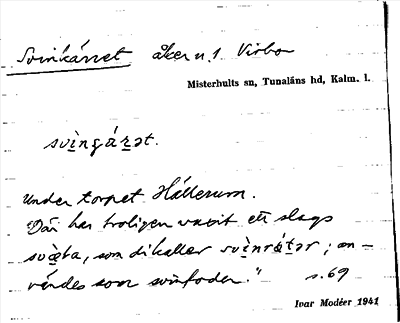 Svinkärret åker u. 1 Virbo
Misterhults sn, Tunaläns hd, Kalm. l.
svìngä́ṟət.
Under torpet Hällerum.
"Där har troligen vuxit ett slags
som di kallar svìnrö́tər; an-
vändes som svinfoder." s. 69
Ivar Modéer 1941